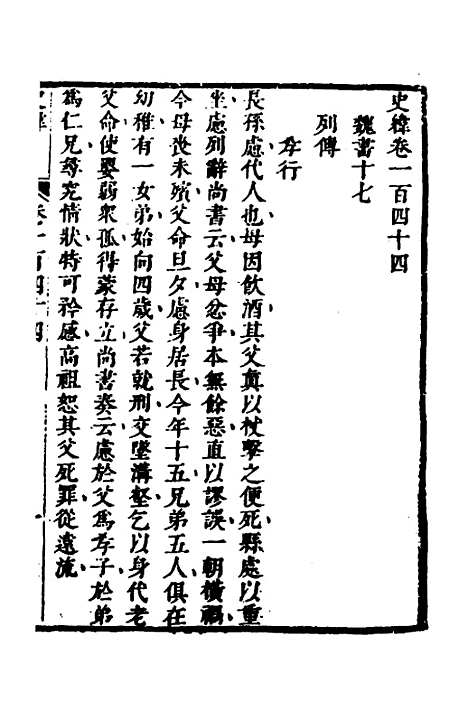 史緯卷一百四十四
魏書十七
列傳
孝行
長孫慮代人也母因飲酒其父真以杖擊之便死縣處以重
坐慮列辭尚書云父母忿爭本無餘惡直以謬誤一朝橫禍
今母喪未殯父命旦夕慮身居長今年十五兄弟五人俱在
幼稚有一女弟始向四歲父若就刑交墜溝壑乞以身代老
父命使嬰弱衆孤得蒙存立尚書奏云慮於父爲孝子於弟
爲仁兄尋究情狀特可矜感高祖恕其父死罪從遠流
卷一百四十四
一